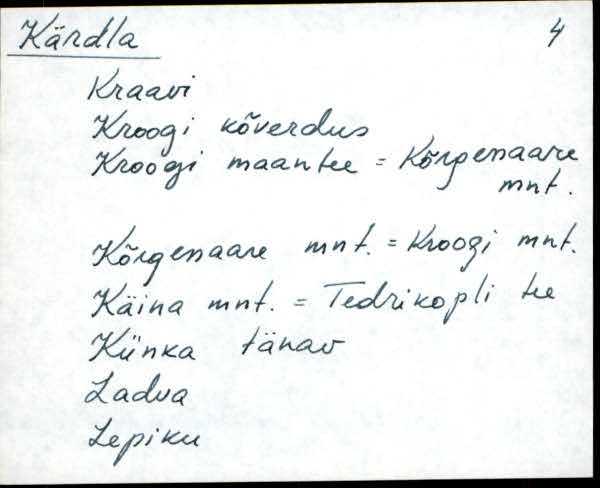 Kärdla 4
Kraavi
Kroogi kõverdus
Kroogi maantee = Kõrgessaare
mnt.
Kõrgessaare mnt. = Kroogi mnt.
Käina mnt. = Tedrikopli tee
Künka tänav
Ladva
Lepiku